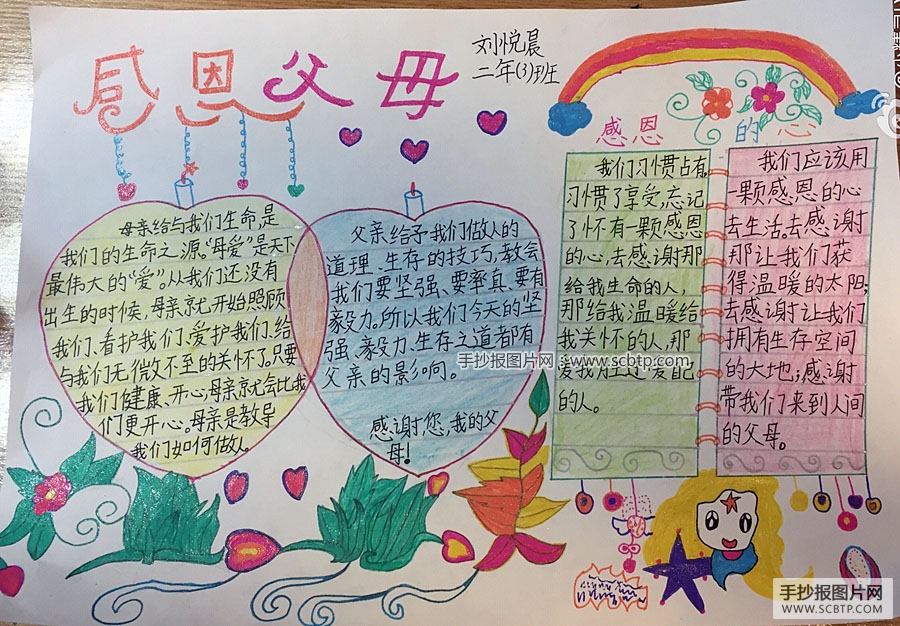 感恩父母
刘悦晨
二年(3)班
母亲给与我们生命,是
我们的生命之源。“母爱”是天下
最伟大的“爱”。从我们还没有
出生的时候,母亲就开始照顾
我们、看护我们、爱护我们、给
与我们无微不至的关怀了。只要
我们健康、开心,母亲就会比我
们更开心。母亲是教导
我们如何做人。
父亲给予我们做人的
道理、生存的技巧,教会
我们要坚强、要率真、要有
毅力。所以我们今天的坚
强、毅力、生存之道都有
父亲的影响。
感谢您,我的父
母!
感恩的心
我们习惯占有,
习惯了享受,忘记
了怀有一颗感恩
的心,去感谢那
给我生命的人,
那给我温暖给
我关怀的人,那
爱我
爱自己
的人。
我们应该用
一颗感恩的心
去生活,去感谢
那让我们获
得温暖的太阳;
去感谢让我们
拥有生存空间
的大地;感谢
带我们来到人间
的父母。
手抄报图片网 www.scbtp.com
手抄报图片网
WWW.SCBTP.COM